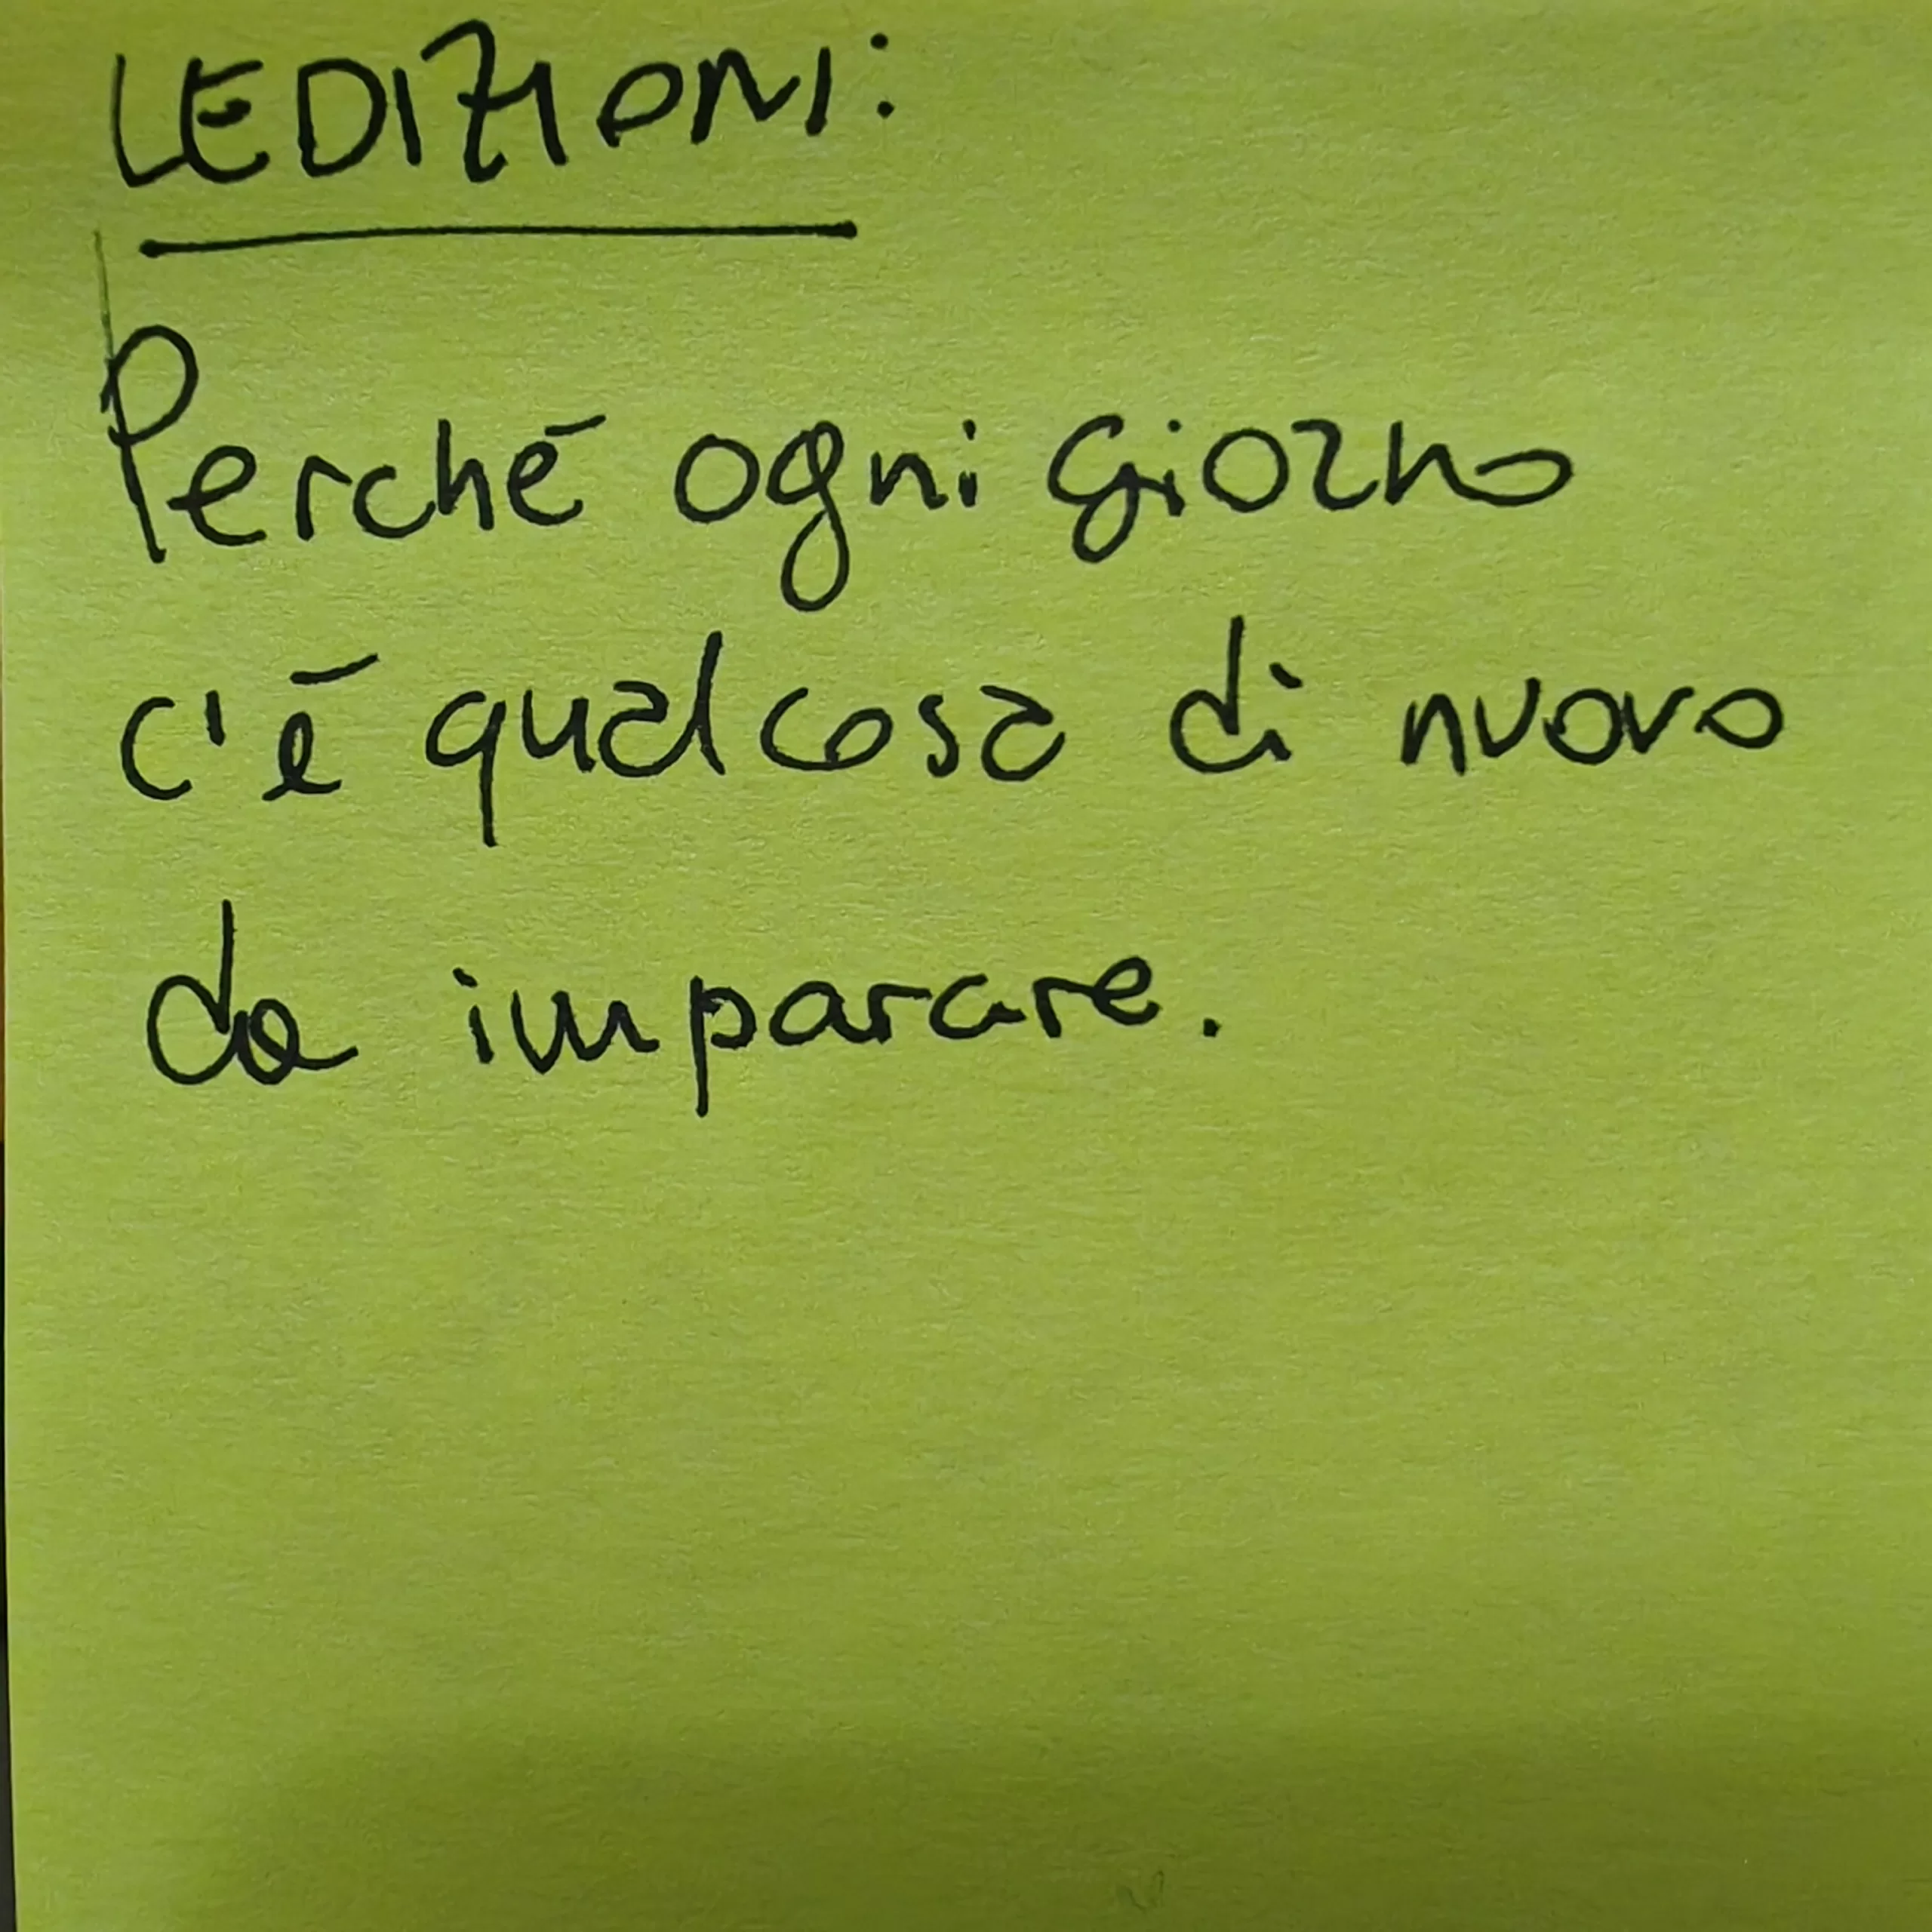 LEDIZIONI:
Perché ogni giorno
c'è qualcosa di nuovo
da imparare.